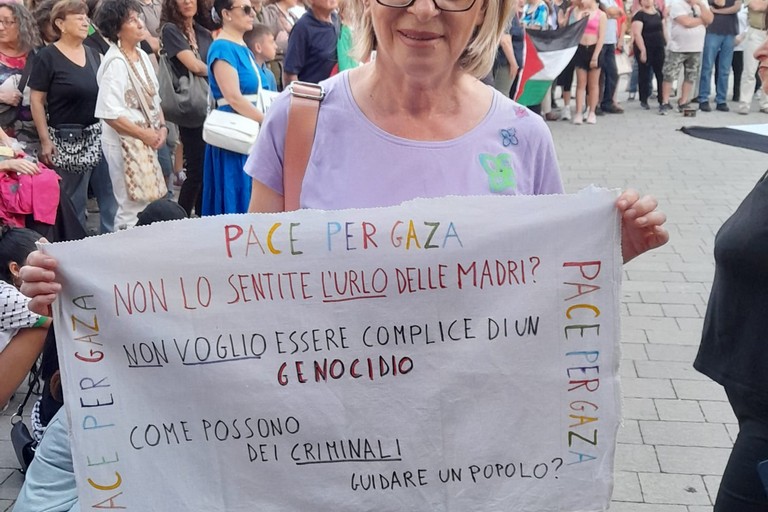 PACE PER GAZA
NON LO SENTITE L'URLO DELLE MADRI?
NON VOGLIO ESSERE COMPLICE DI UN
GENOCIDIO
COME POSSONO
DEI CRIMINALI
GUIDARE UN POPOLO?
PACE PER GAZA
PACE PER GAZA